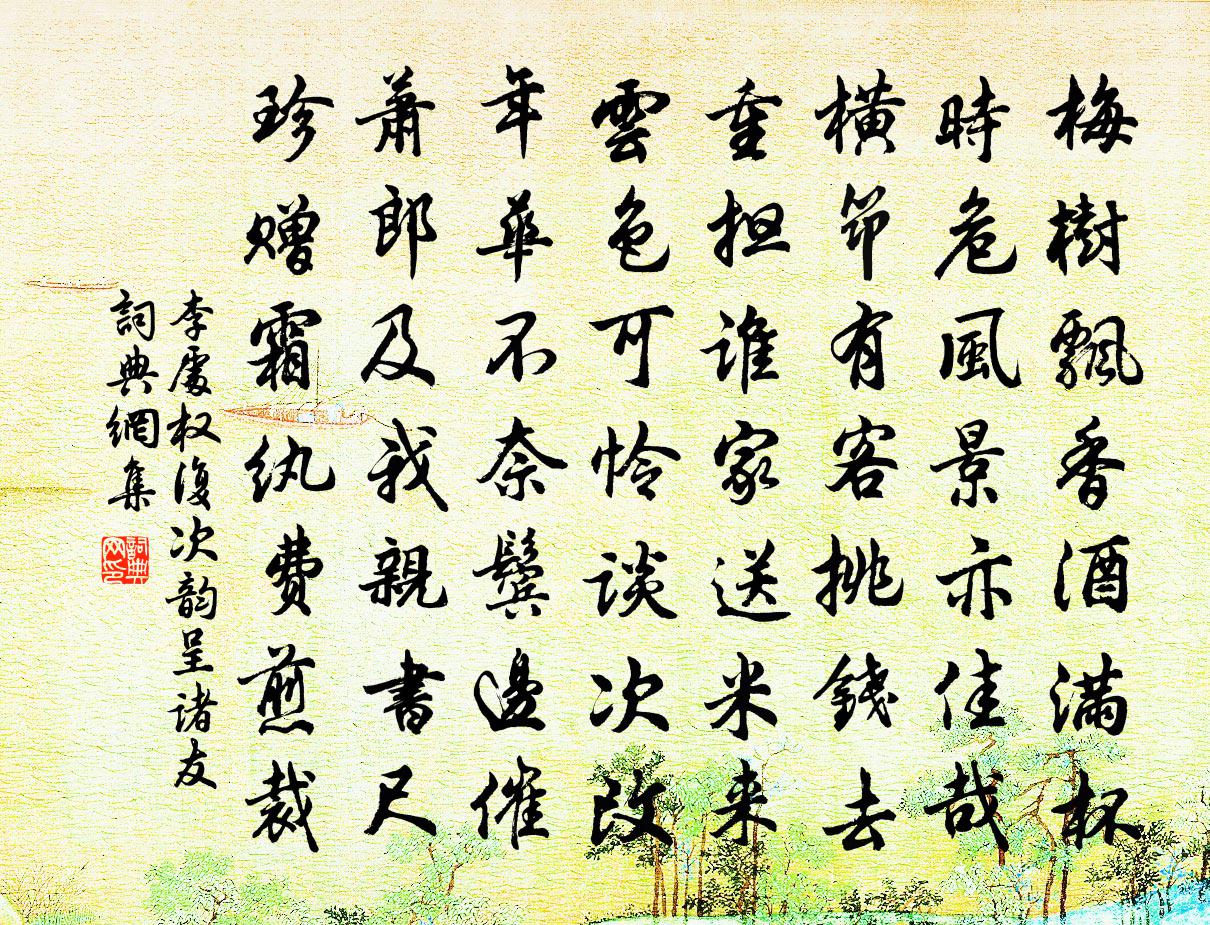 梅樹飄香酒满杯
時危風景亦佳哉
横笻有客挑錢去
重担誰家送米来
雲色可怜談次改
年華不奈鬓邊催
蕭郎及我親書尺
珍赠霜紈費煎裁
李處权復次韵呈诸友
詞典網集
詞典网印